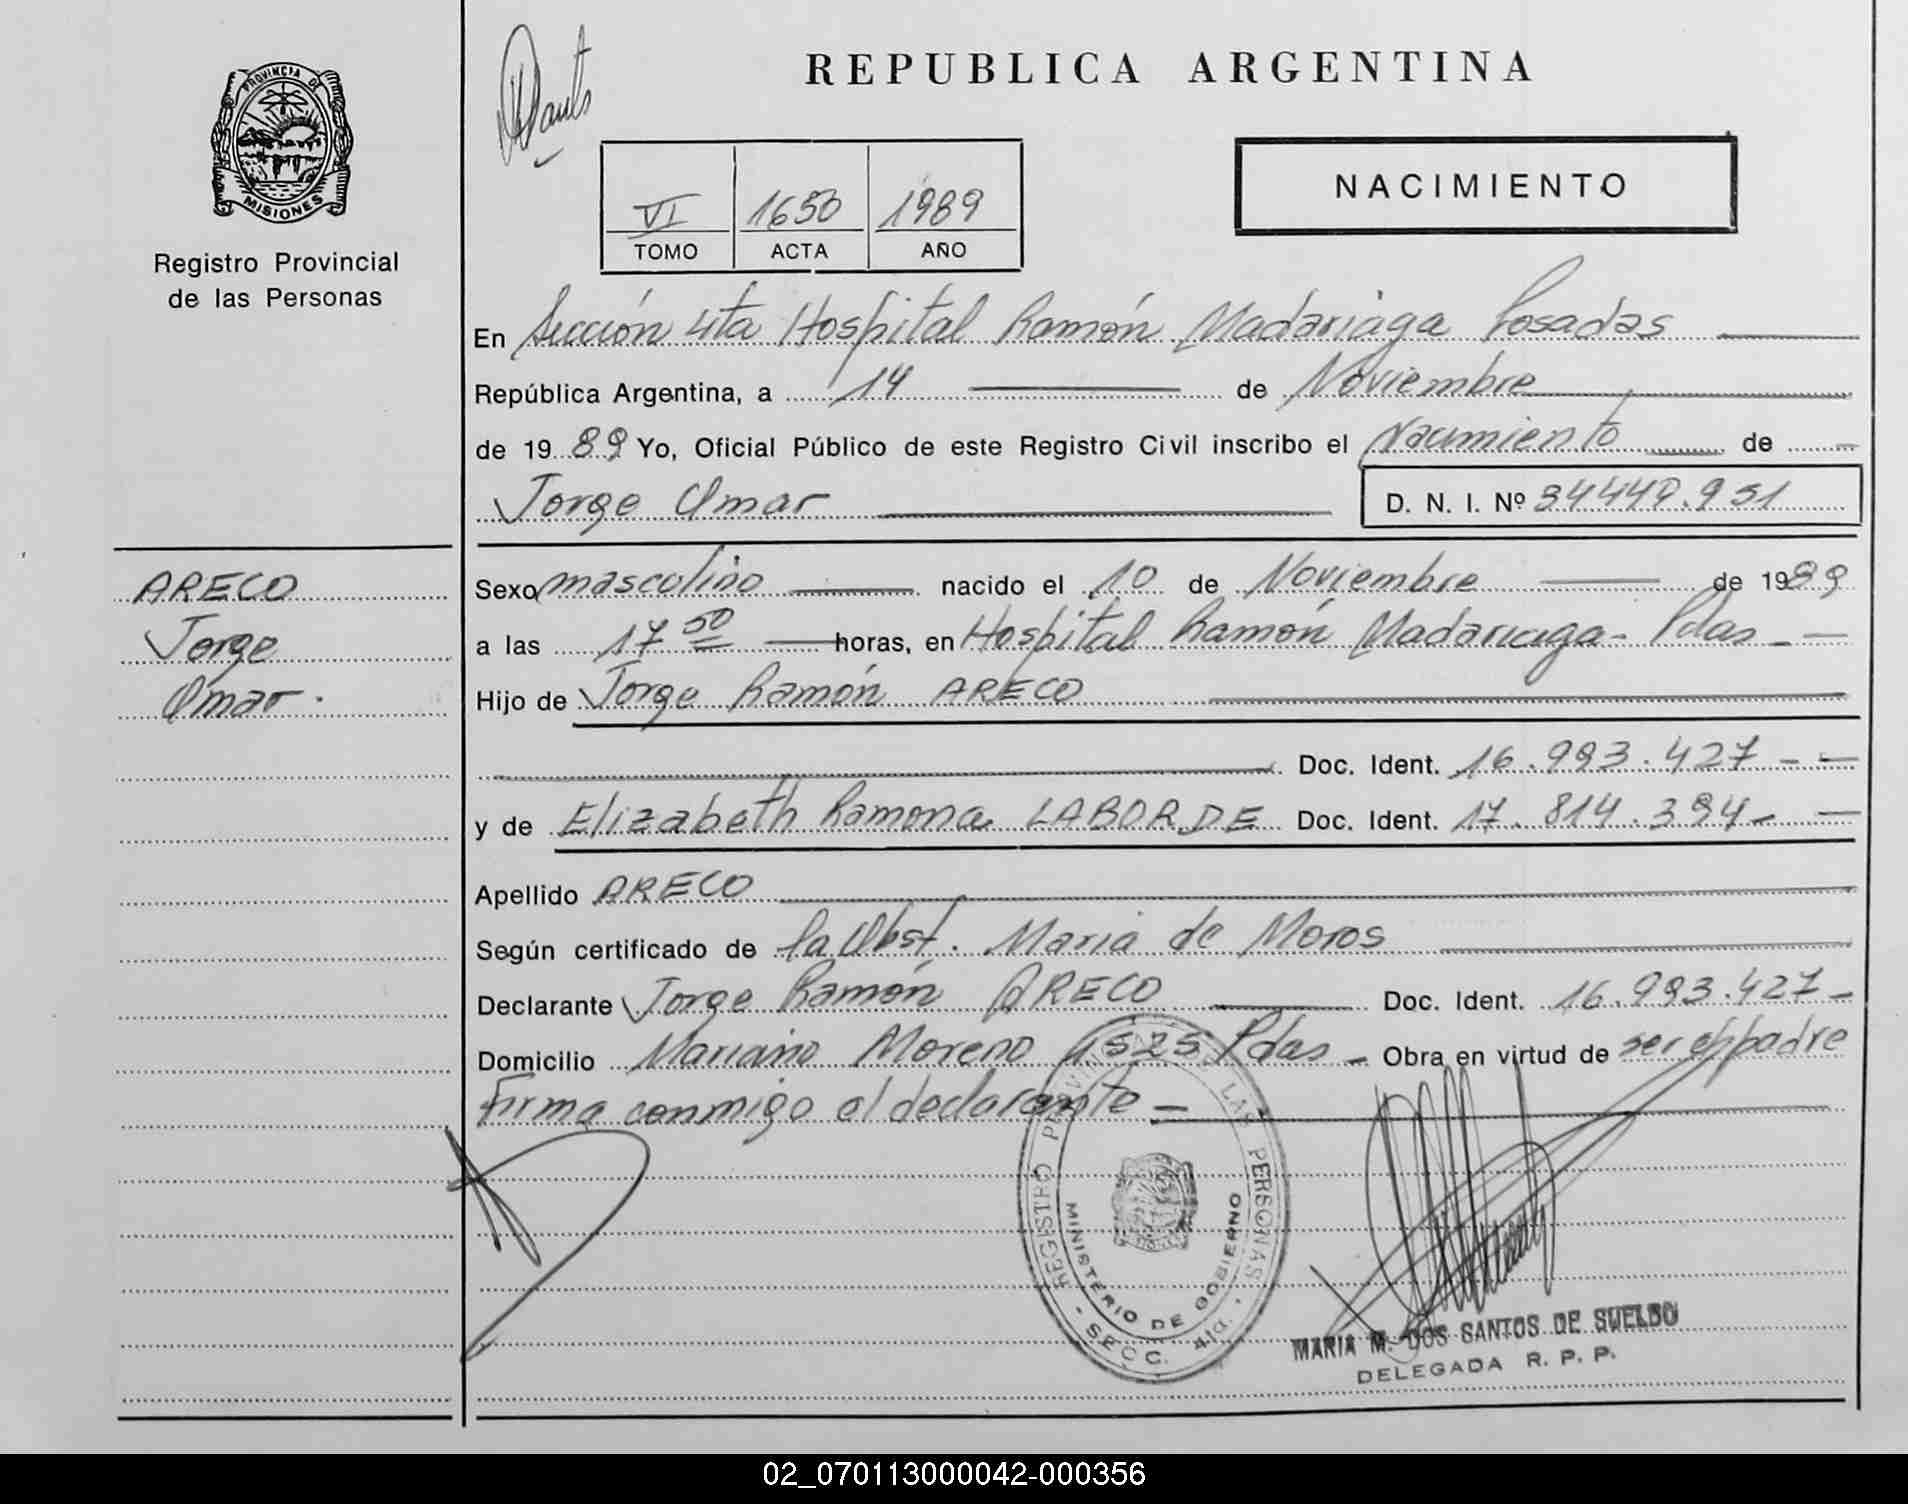 PROVINCIA DE
MISIONES
Registro Provincial
de las Personas
REPUBLICA ARGENTINA
VI 1650 1989
TOMO ACTA AÑO
NACIMIENTO
En Sección 4ta Hospital Ramón Madariaga Posadas
República Argentina, a 14 de Noviembre
de 1989 Yo, Oficial Público de este Registro Civil inscribo el Nacimiento de
Jorge Omar D. N. I. Nº
ARECO
Jorge
Omar.
Sexo masculino nacido el 10 de Noviembre de 1989
a las 17 50 horas, en Hospital Ramón Madariaga - Pdas -
Hijo de Jorge Ramón ARECO
Doc. Ident. 16.993.427 -
y de Elizabeth Ramona LABORDE Doc. Ident. 17.814.394 -
Apellido ARECO
Según certificado de la Obst. Maria de Moros
Declarante Jorge Ramón ARECO Doc. Ident. 16.993.427 -
Domicilio Mariano Moreno 1525 Pdas - Obra en virtud de ser el padre
Firma conmigo el declarante -
REGISTRO PROVINCIAL DE LAS PERSONAS
MINISTERIO DE GOBIERNO
- SECC. 4ta. -
MARIA M. DOS SANTOS DE SUELDO
DELEGADA R. P. P.
02_070113000042-000356